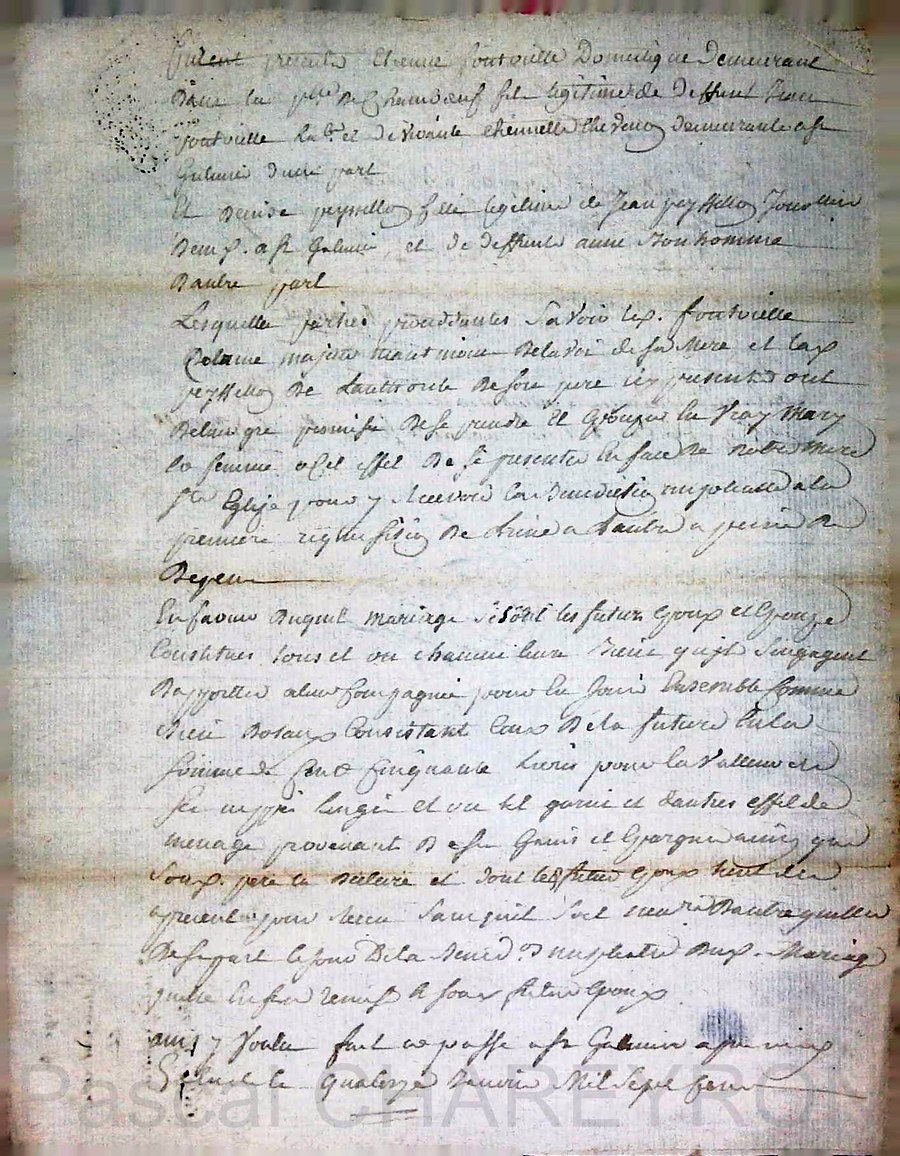 furent presents Etienne fontvielle Domestique Demeurant
Dans la psse De Chambœuf fils legitime de deffunt Jean
fontvielle Labr et de vivante etiennette demeurante a St
Galmier d'une part
Et Denise peyssellon fille legitime de Jean peyssellon Journalier
Demt a St Galmier, et de deffunte anne Bonhomme
D'autre part
Lesquelles parties procedantes savoir led. fontvielle
Comme majeur neantmoins De lavis de sa Mere et lad
peyssellon De Lauthorité De son pere icy present ont
De leur gré promis De se prendre Et Epouzer en vray Mary
et femme a Cet effet De se presenter En face De notre Mere
Ste Eglise pour y Recevoir la Benediction nuptialle a la
premiere requisition De L'une a L'autre a peine De
Depens
En faveur Duquel mariage se sont les futurs Epoux et Epouze
Constitués tous et un chacun leurs Biens qu'ils s'engagent
D'apporter a leur Compagnie pour En Jouir Ensemble Comme
Biens Dotaux Consistant Ceux De la future En la
somme de Cent Cinquante Livres pour la valleur de
ses nippes Linges et un lit garni et d'autres effet de
menage provenant De ses Gains et Epargnes ainsy que
Sond. pere la Declaré et dont led. futur Epoux tient
apresent pour Receu sans qu'il soit Besoin D'autre quittance
De sa part le jour De la Benedon nuptialle Dud. Mariage
quelle En fera remise A son futur Epoux
ainsy Voulu fait et passé a St Galmier apres midy
le quatorze Janvier Mil Sept Cent
Pascal CHAREYRON